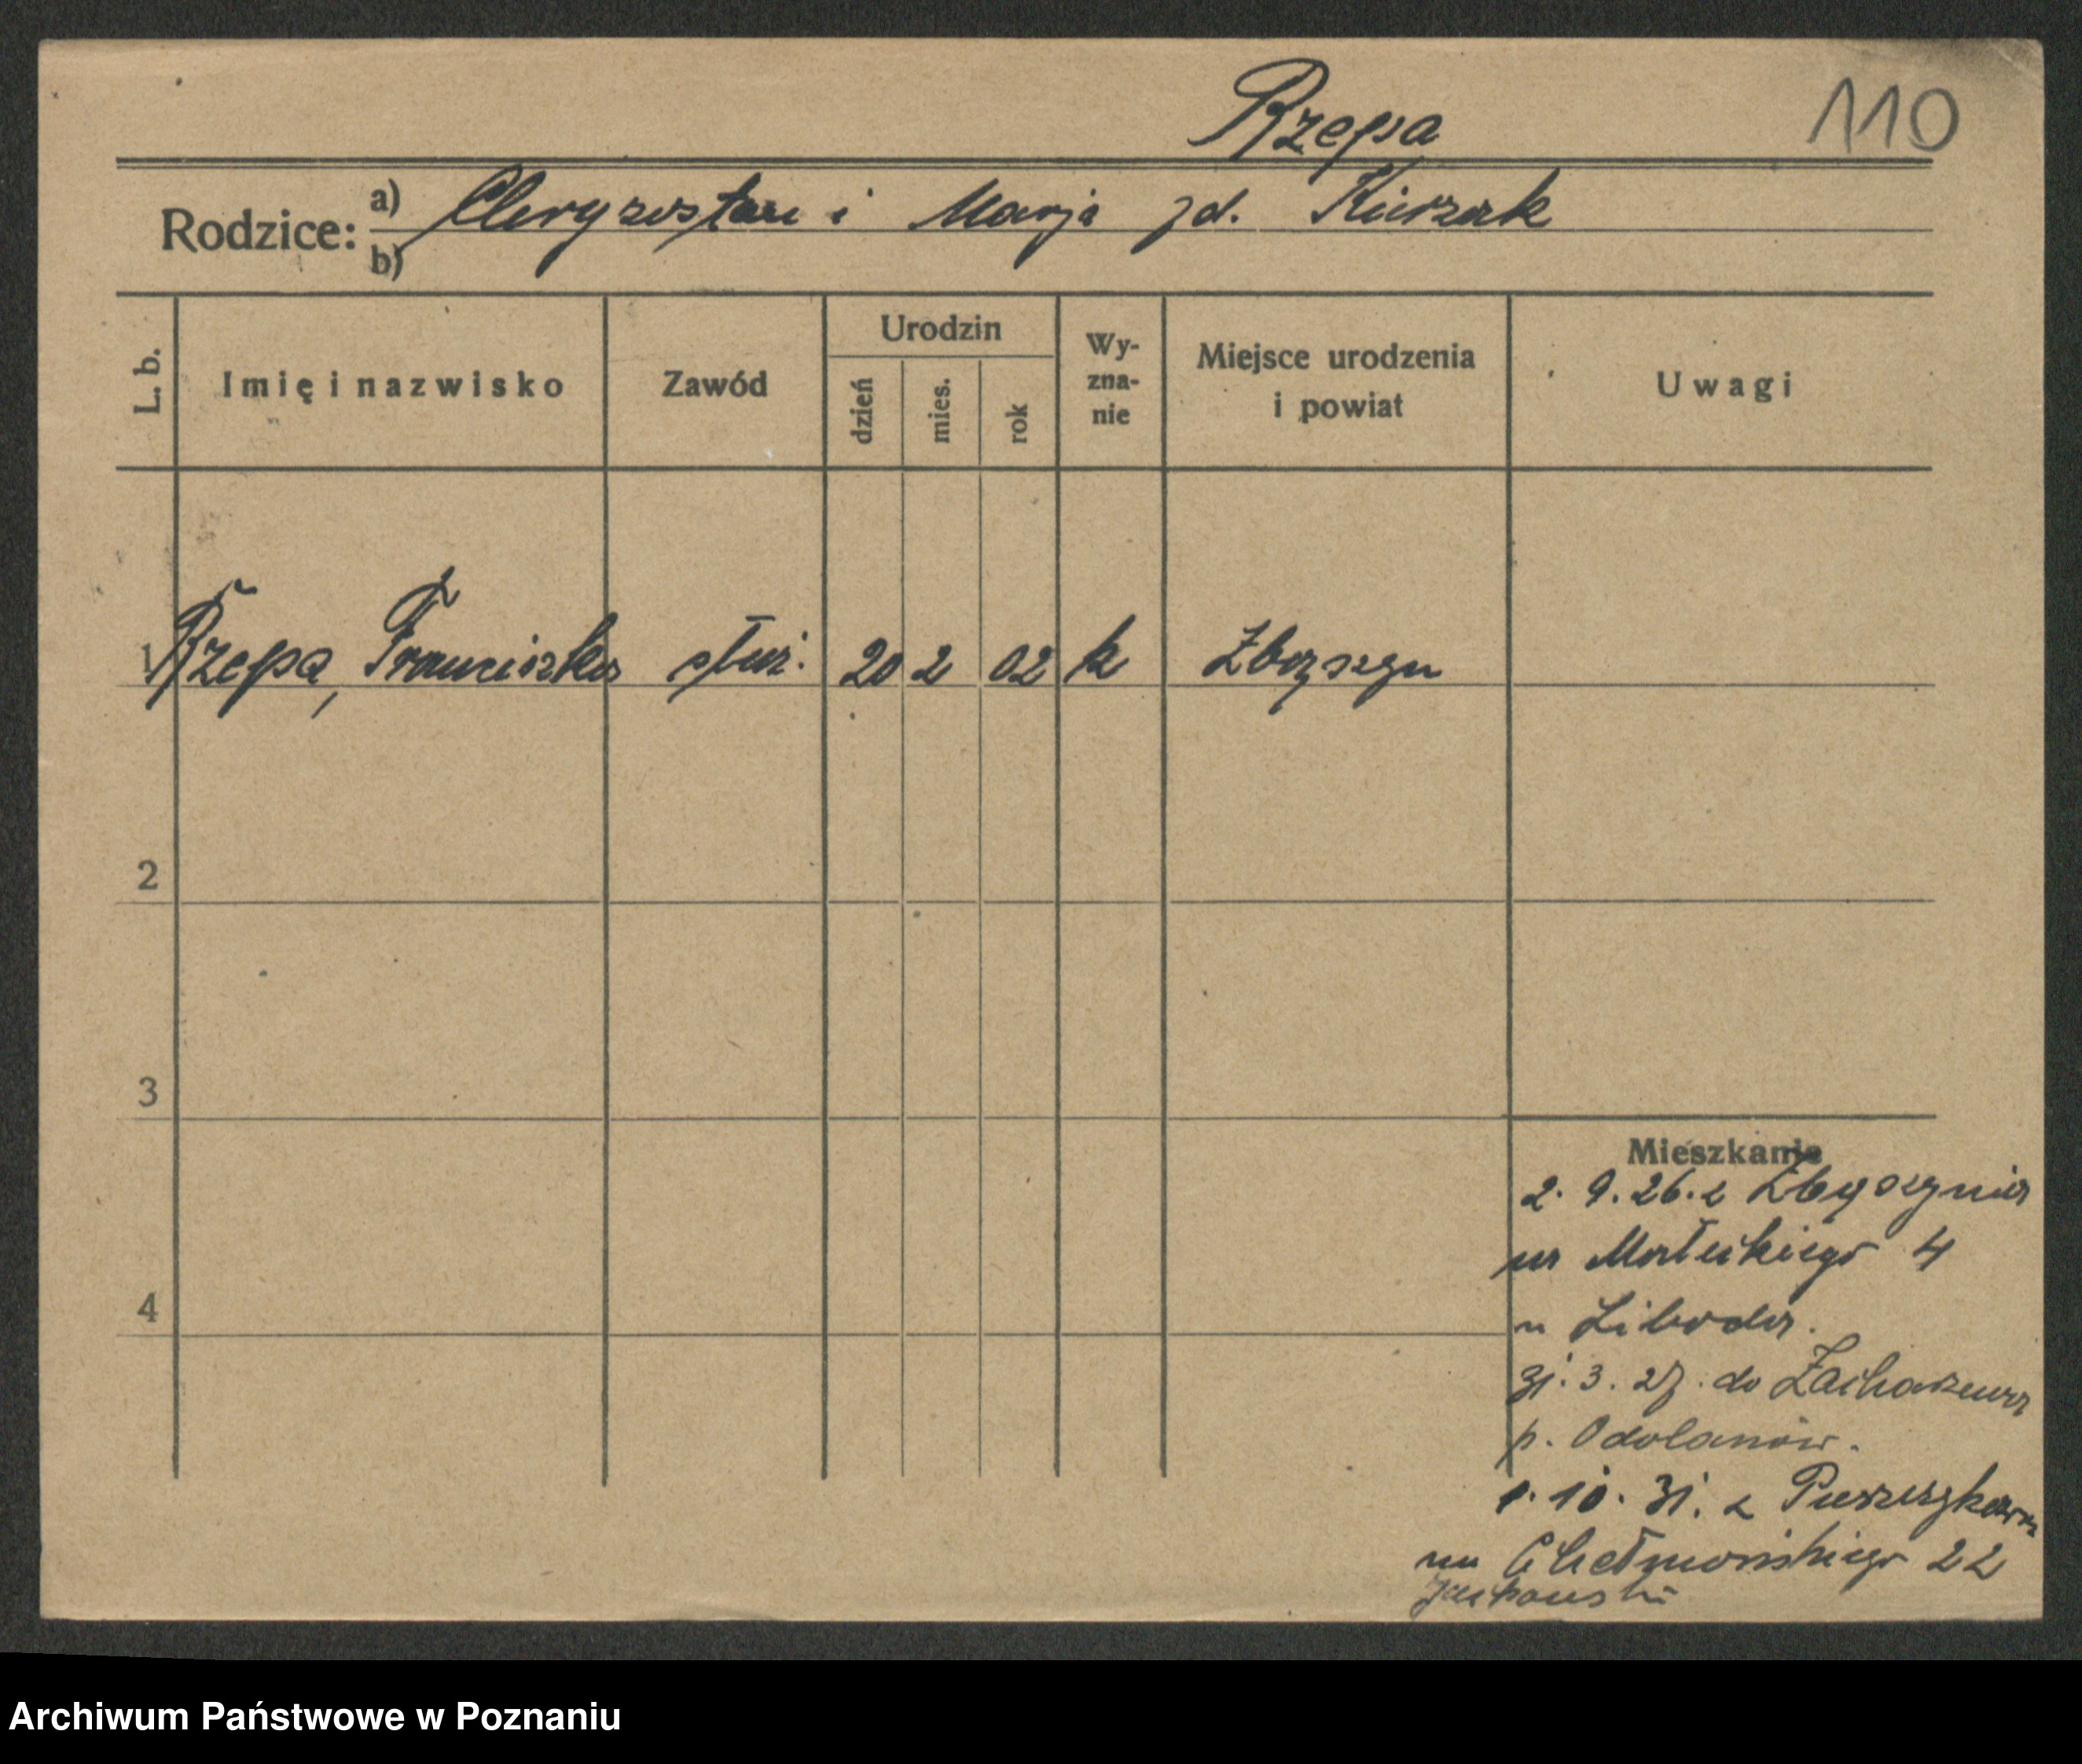 Rzepa
110
Rodzice: a) Chryzostom i Marja zd. Kurzak
b)
L. b. Imię i nazwisko Zawód Urodzin dzień mies. rok Wy-zna-nie Miejsce urodzenia i powiat Uwagi
1 Rzepa, Franciszka służ. 20 2 02 k Zbyszyn
2
3
4
Mieszkanie
2. 9. 26. z
na Małeckiego 4
u Liboda.
31. 3. 27. do Zacharzewa
p. Odolanów.
1. 10. 31. z
na Chełmońskiego 22
Archiwum Państwowe w Poznaniu